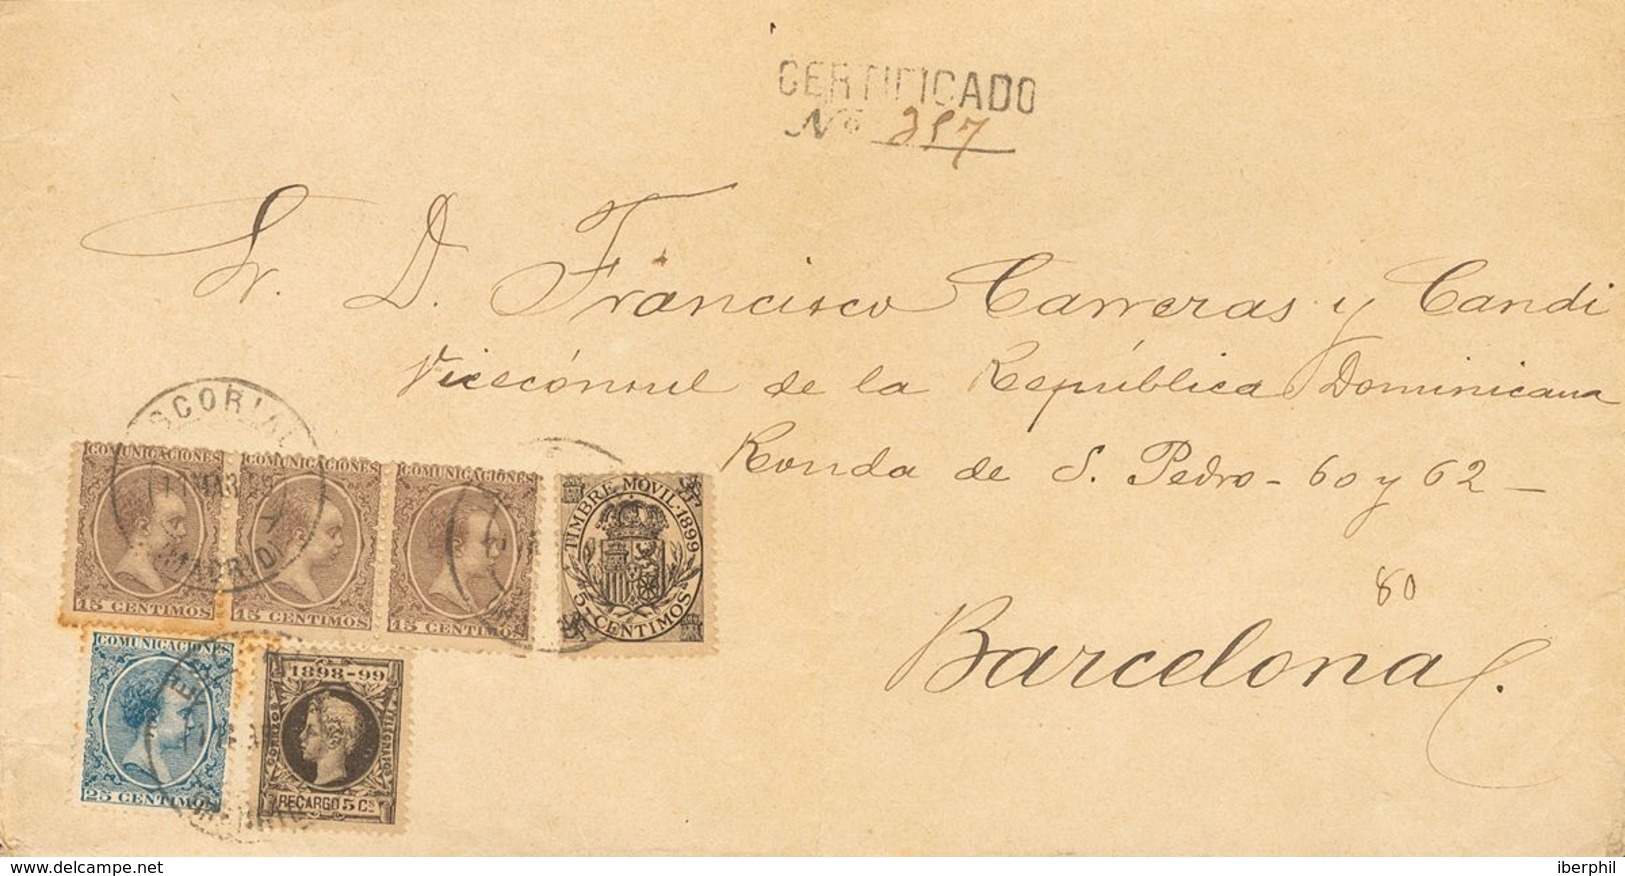 CERTIFICADO
Nº 297
Sr. D. Francisco Carreras y Candi
Vicecónsul de la República Dominicana
Ronda de S. Pedro - 60 y 62 -
80
Barcelona
ESCORIAL
MADRID
COMUNICACIONES
15 CENTIMOS
COMUNICACIONES
15 CENTIMOS
COMUNICACIONES
15 CENTIMOS
TIMBRE MOVIL·1899
5 CENTIMOS
COMUNICACIONES
25 CENTIMOS
1898-99
CORREOS
RECARGO 5 Cs
delcampe.net
iberphil